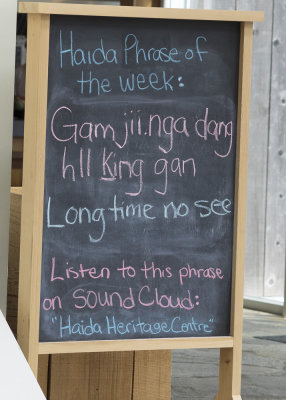 Haida Phrase of
the week:
Gam jii.nga dang
hll ḵing gan
Long time no see
Listen to this phrase
on Sound Cloud:
"Haida Heritage Centre"